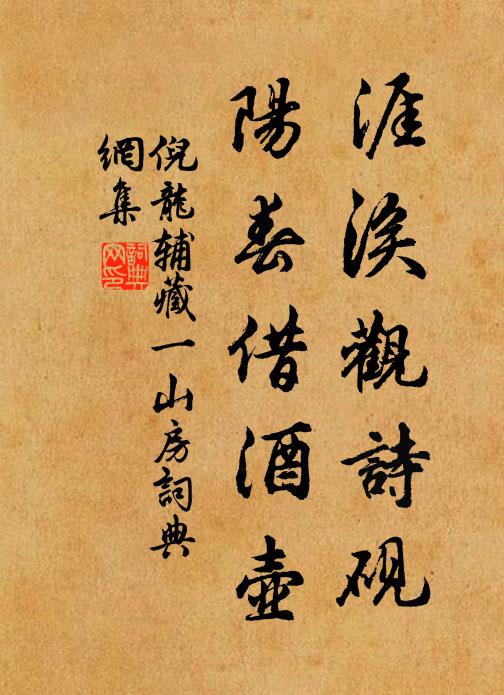 涯涘觀詩硯
陽春借酒壺
倪龍辅藏一山房詞典
網集
詞典
网印